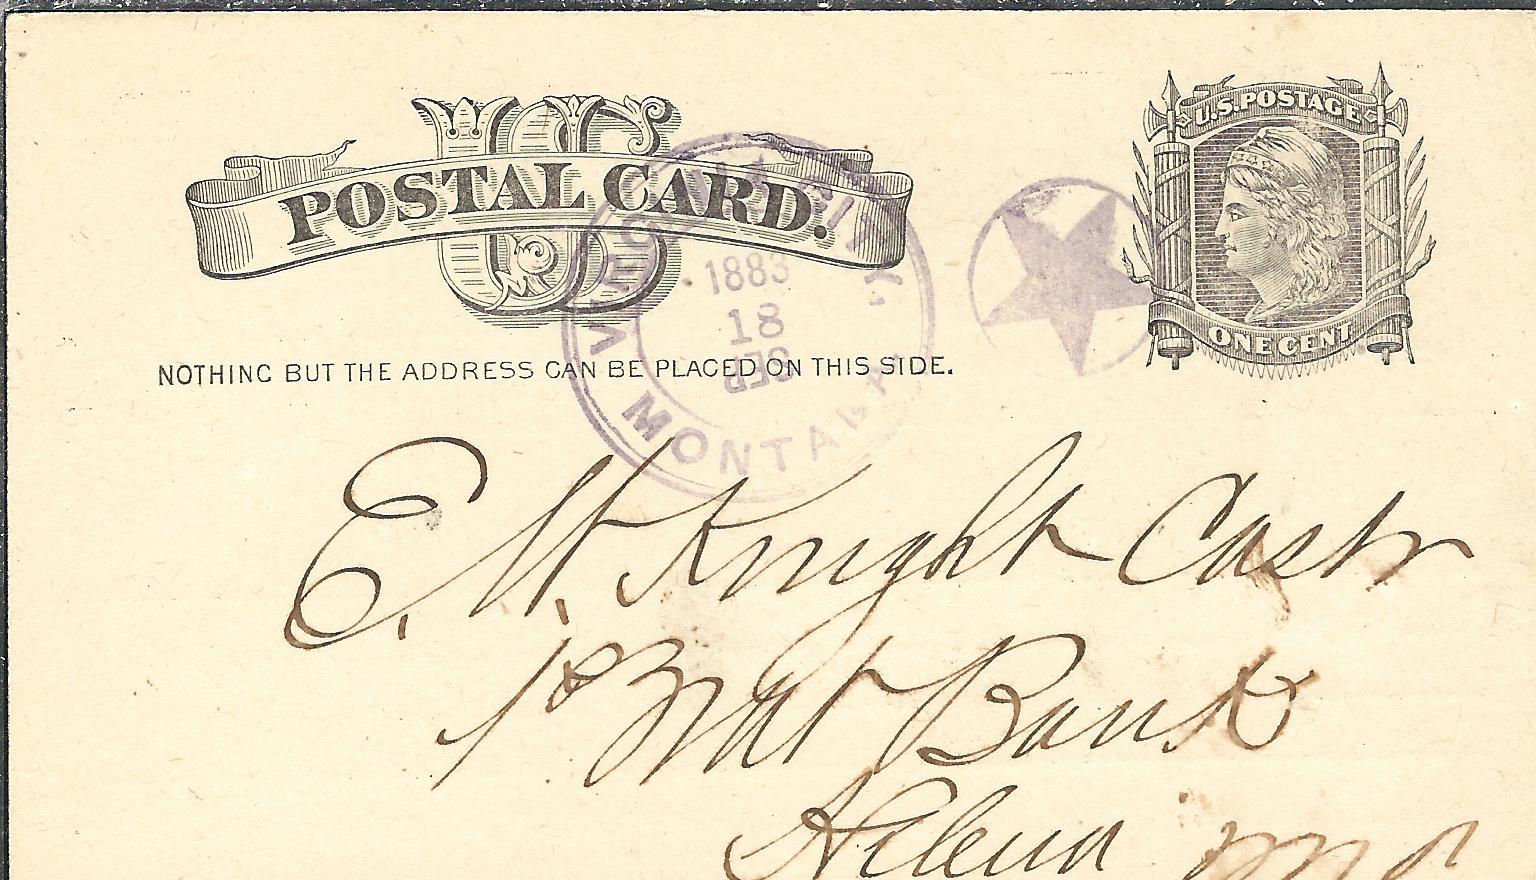 US
POSTAL CARD.
U.S. POSTAGE
ONE CENT
VIRGINIA CITY,
1883
18
SEP
MONTANA
NOTHING BUT THE ADDRESS CAN BE PLACED ON THIS SIDE.
E. W. Knight Cashr
1st Nat Bank
Helena